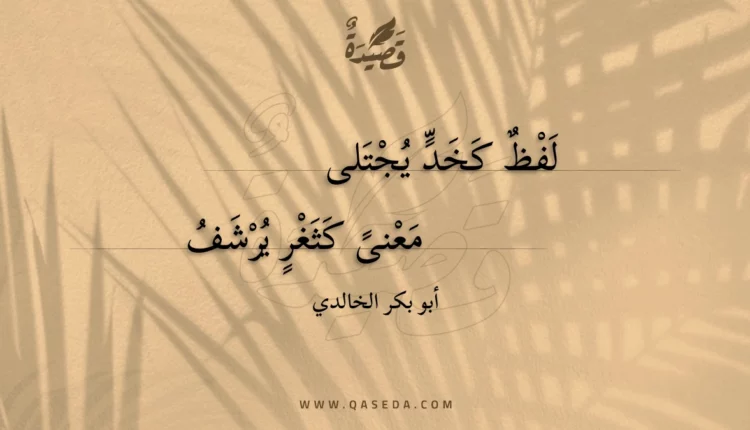 قَصِيدَةٌ
لَفْظٌ كَخَدٍّ يُجْتَلى
مَعْنىً كَثَغْرٍ يُرْشَفُ
أبو بكر الخالدي
WWW.QASEDA.COM